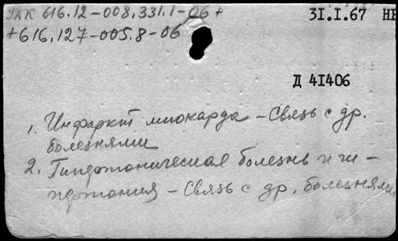 УДК 616.12-008.331.1-06 +
+616.127-005.8-06
31.I.67 НЕ
Д 41406
1. Инфаркт миокарда - Связь с др.
болезнями
2. Гипертоническая болезнь и ги-
пертония - Связь с др. болезнями